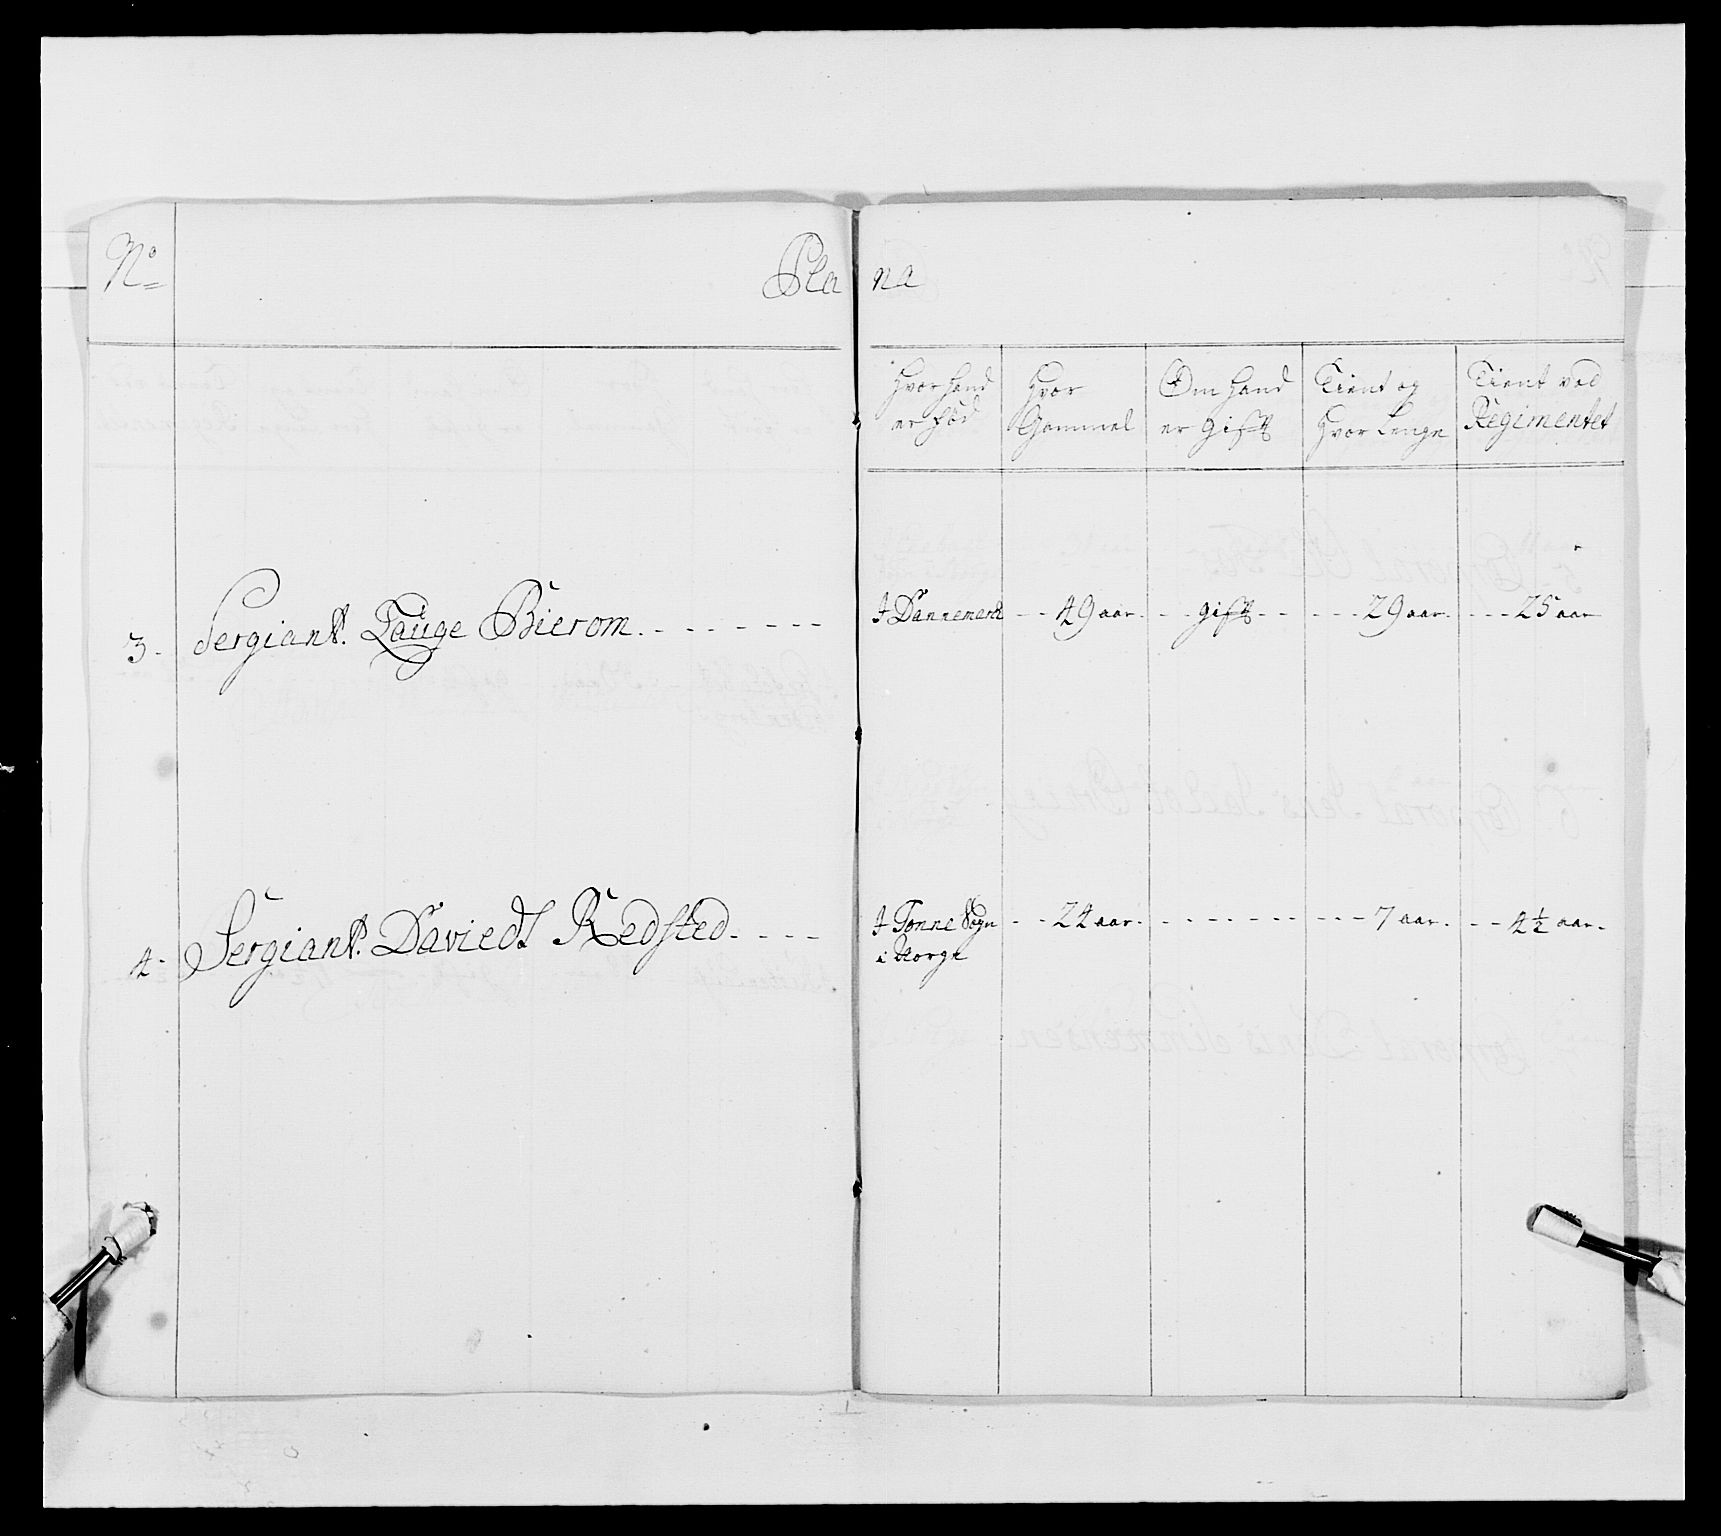 No Pla na
Hvor hand er föd Hvor Gammel Om hand er gift Tient og Hvor Lenge Tient ved Regimentet
3. Sergiant. Lauge Bierom. - - - - - - - I Dannemark - - 49 aar. - - gift - - - - - 29 aar. - - - 25 aar
4. Sergiant. Daviedt Redsted. - - - - I Tonne Sogn - - 24 aar. - - - - - - - - - - 7 aar. - - 4½ aar.
i Norge